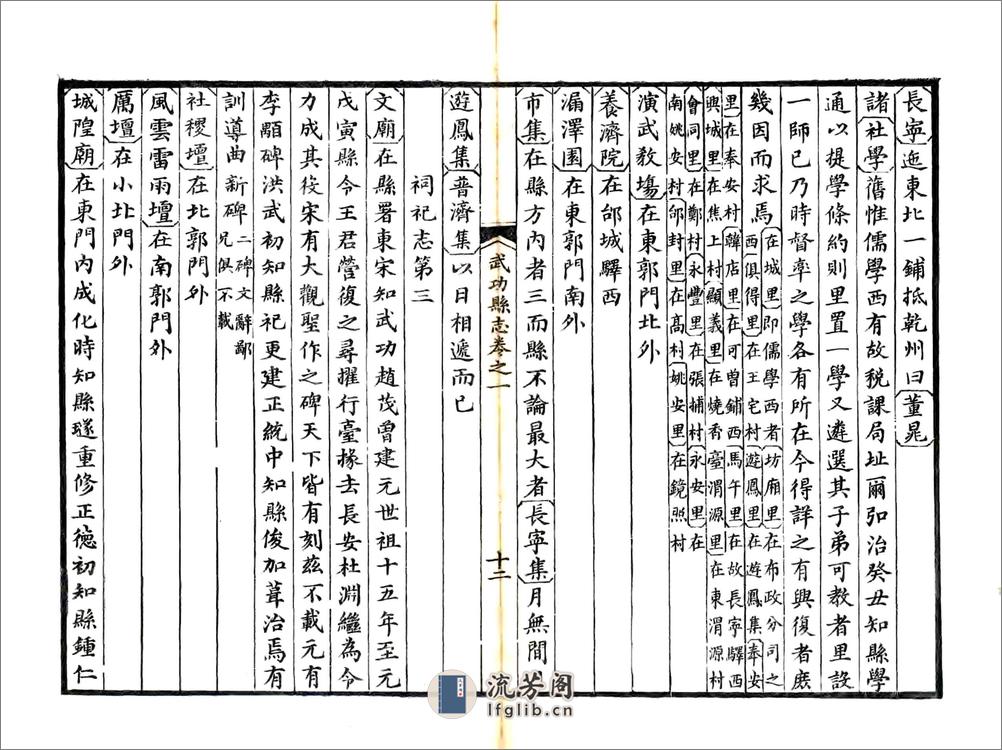 長寧迤東北一鋪抵乾州曰董晁
諸社學舊惟儒學西有故稅課局址爾弘治癸丑知縣學
通以提學條約則里置一學又遴選其子弟可教者里設
一師已乃時督率之學各有所在今得詳之有興復者庶
幾因而求焉在城里即儒學西者坊廂里在布政分司之
西俱得里在王宅村遊鳳里在遊鳳集奉安
里在奉安村韓店里在可曾鋪西馬午里在故長寧驛西
興城里在焦上村顯義里在燒香臺渭源里在東渭源村
會同里在鄭村永豐里在張捕村永安里在
南姚安村邰封里在高村姚安里在鏡照村
演武教場在東郭門北外
養濟院在邰城驛西
漏澤園在東郭門南外
市集在縣方內者三而縣不論最大者長寧集月無閒
遊鳳集普濟集以日相遞而已
武功縣志卷之一
十二
祠祀志第三
文廟在縣署東宋知武功趙茂曾建元世祖十五年至元
戊寅縣令王君營復之尋擢行臺掾去長安杜淵繼為令
力成其役宋有大觀聖作之碑天下皆有刻茲不載元有
李顒碑洪武初知縣祀更建正統中知縣俊加葺治焉有
訓導曲新碑二碑文辭鄙
兄俱不載
社稷壇在北郭門外
風雲雷雨壇在南郭門外
厲壇在小北門外
城隍廟在東門內成化時知縣璲重修正德初知縣鍾仁
流芳阁
lfglib.cn